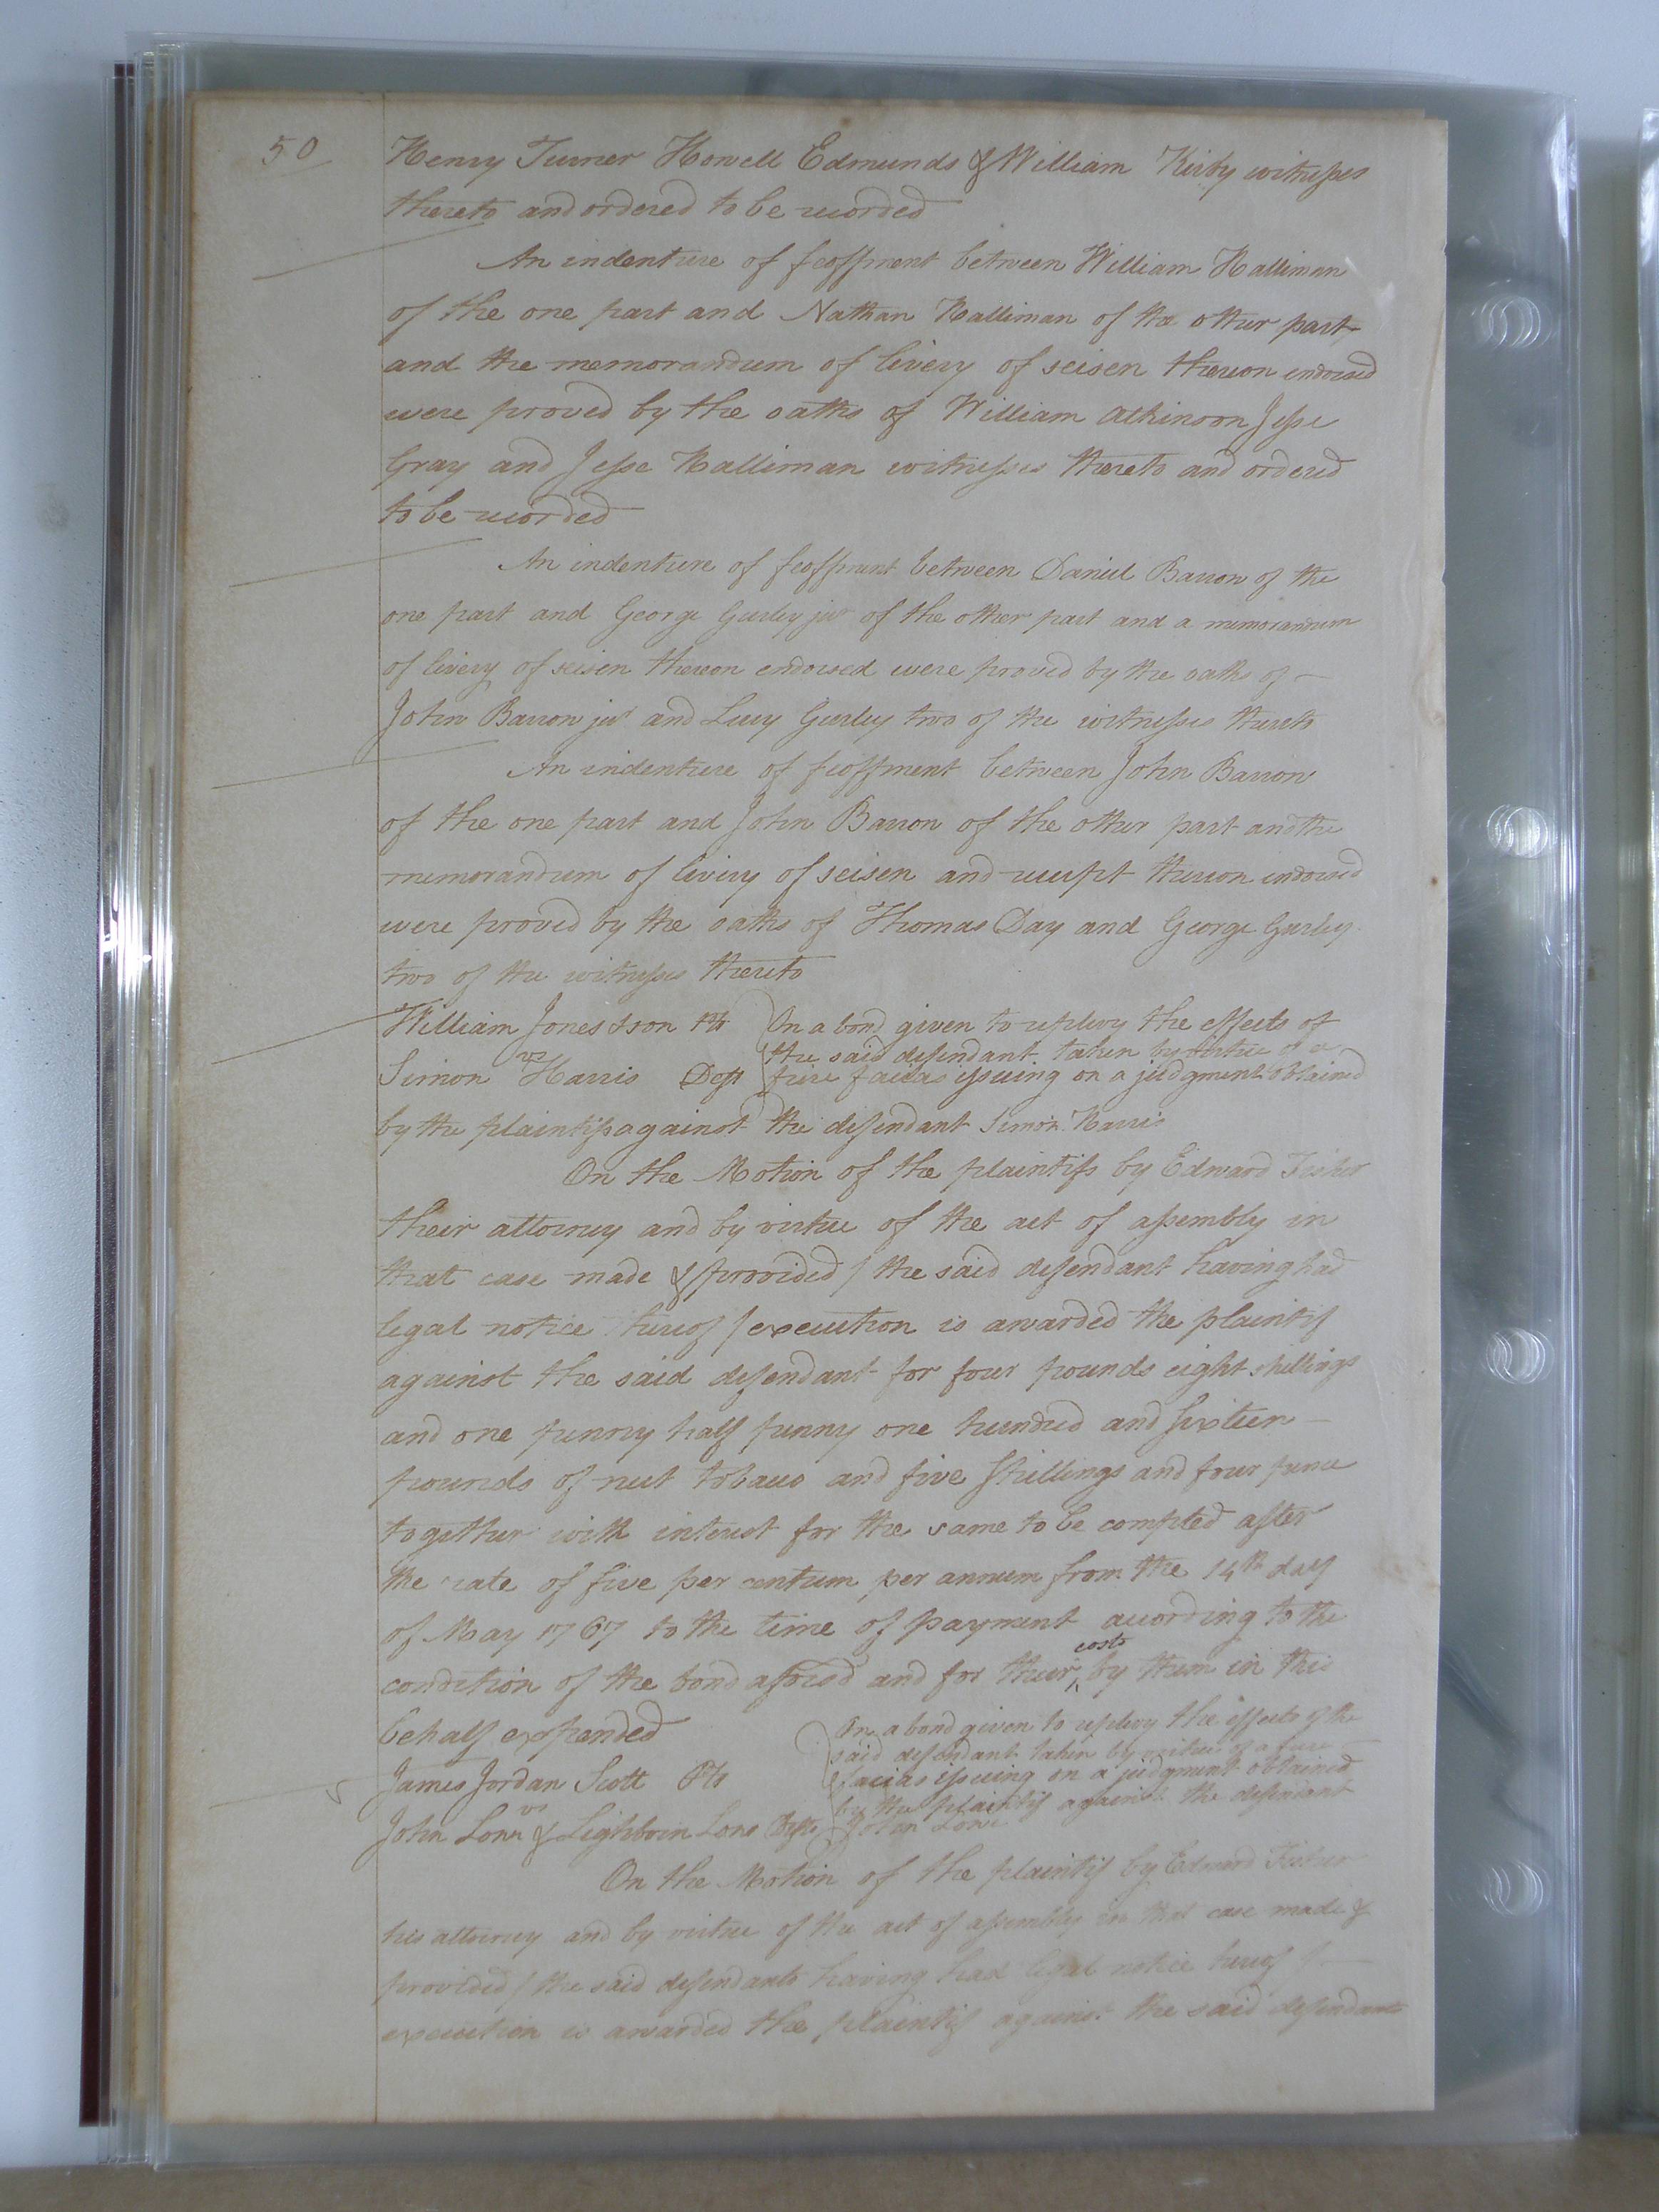 50
Henry Turner Howell Edmunds & William Kirby witnesses
thereto and ordered to be recorded
An indenture of feoffment between William Halliman
of the one part and Nathan Halliman of the other part
and the memorandum of livery of seisen thereon endorsed
were proved by the oaths of William Atkinson Jesse
Gray and Jesse Halliman witnesses thereto and ordered
to be recorded
An indenture of feoffment between Daniel Barron of the
one part and George Gurley junr of the other part and a memorandum
of livery of seisen thereon endorsed were proved by the oaths of
John Barron junr and Lucy Gurley two of the witnesses thereto
An indenture of feoffment between John Barron
of the one part and John Barron of the other part and the
memorandum of livery of seisen and receipt thereon endorsed
were proved by the oaths of Thomas Day and George Gurley
two of the witnesses thereto
William Jones & son Plts On a bond given to replevy the effects of
vs the said defendant taken by virtue of a
Simon Harris Deft fiere facias issuing on a judgment obtained
by the plaintifs against the defendant Simon Harris
On the Motion of the plaintifs by Edward Fisher
their attorney and by virtue of the act of assembly in
that case made & provided / the said defendant having had
legal notice hereof / execution is awarded the plaintif
against the said defendant for four pounds eight shillings
and one penny half penny one hundred and sixteen
pounds of nett tobacco and five shillings and four pence
together with interest for the same to be compted after
the rate of five per centum per annum from the 14th day
of May 1767 to the time of payment according to the
condition of the bond aforesd and for their costs by them in this
behalf expended On a bond given to replevy the effects of the
said defendant taken by virtue of a fiere
James Jordan Scott Plt facias issuing on a judgment obtained
vs by the plaintif against the defendant
John & Defts John
On the Motion of the plaintif by Edward Fisher
his attorney and by virtue of the act of assembly in that case made &
provided / the said defendants having had legal notice hereof /
execution is awarded the plaintif against the said defendants